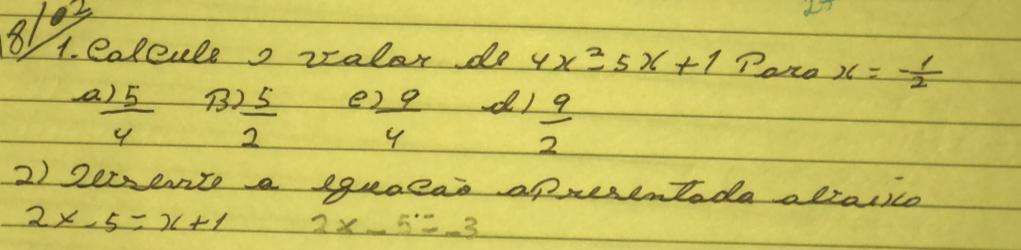 18/02
1. Calcule o valor de 4x²-5x+1 Para x = -1/2
a) 5/4 B) 5/2 c) 9/4 d) 9/2
2) a equação apresentada abaixo
2x-5=x+1 2x-5=-3